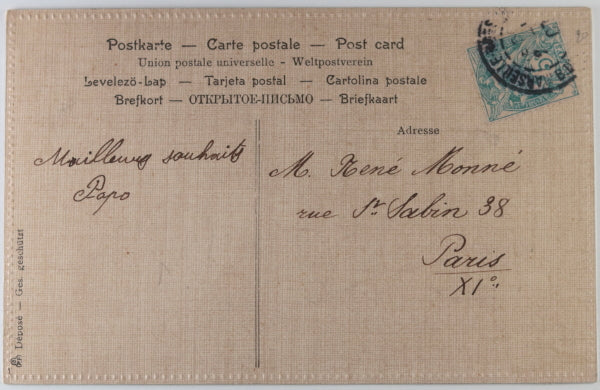 Postkarte — Carte postale — Post card
Union postale universelle - Weltpostverein
Levelezö-Lap — Tarjeta postal — Cartolina postale
Brefkort — ОТКРЫТОЕ-ПИСЬМО — Briefkaart
Adresse
Meilleurs souhaits
Papo
M. René Monné
rue St Sabin 38
Paris
XI°
Déposé — Ges. geschützt